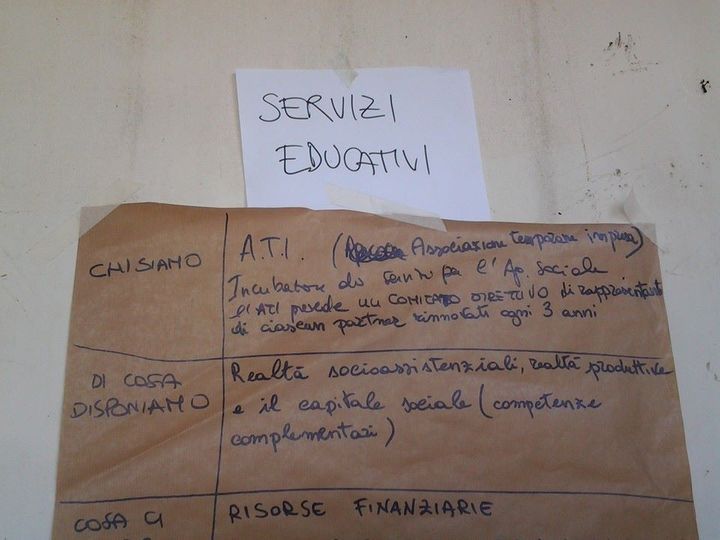 SERVIZI
EDUCATIVI
CHI SIAMO
A.T.I. ( Associazione temporare impresa)
Incubatore do servizi per l'Ag. Sociale
l'ATI prevede un COMITATO DIRETTIVO di rappresentante
di ciascun partner rinnovati ogni 3 anni
DI COSA
DISPONIAMO
Realtà socioassistenziali, realtà produttive
e il capitale sociale (competenze
complementari)
COSA CI
RISORSE FINANZIARIE